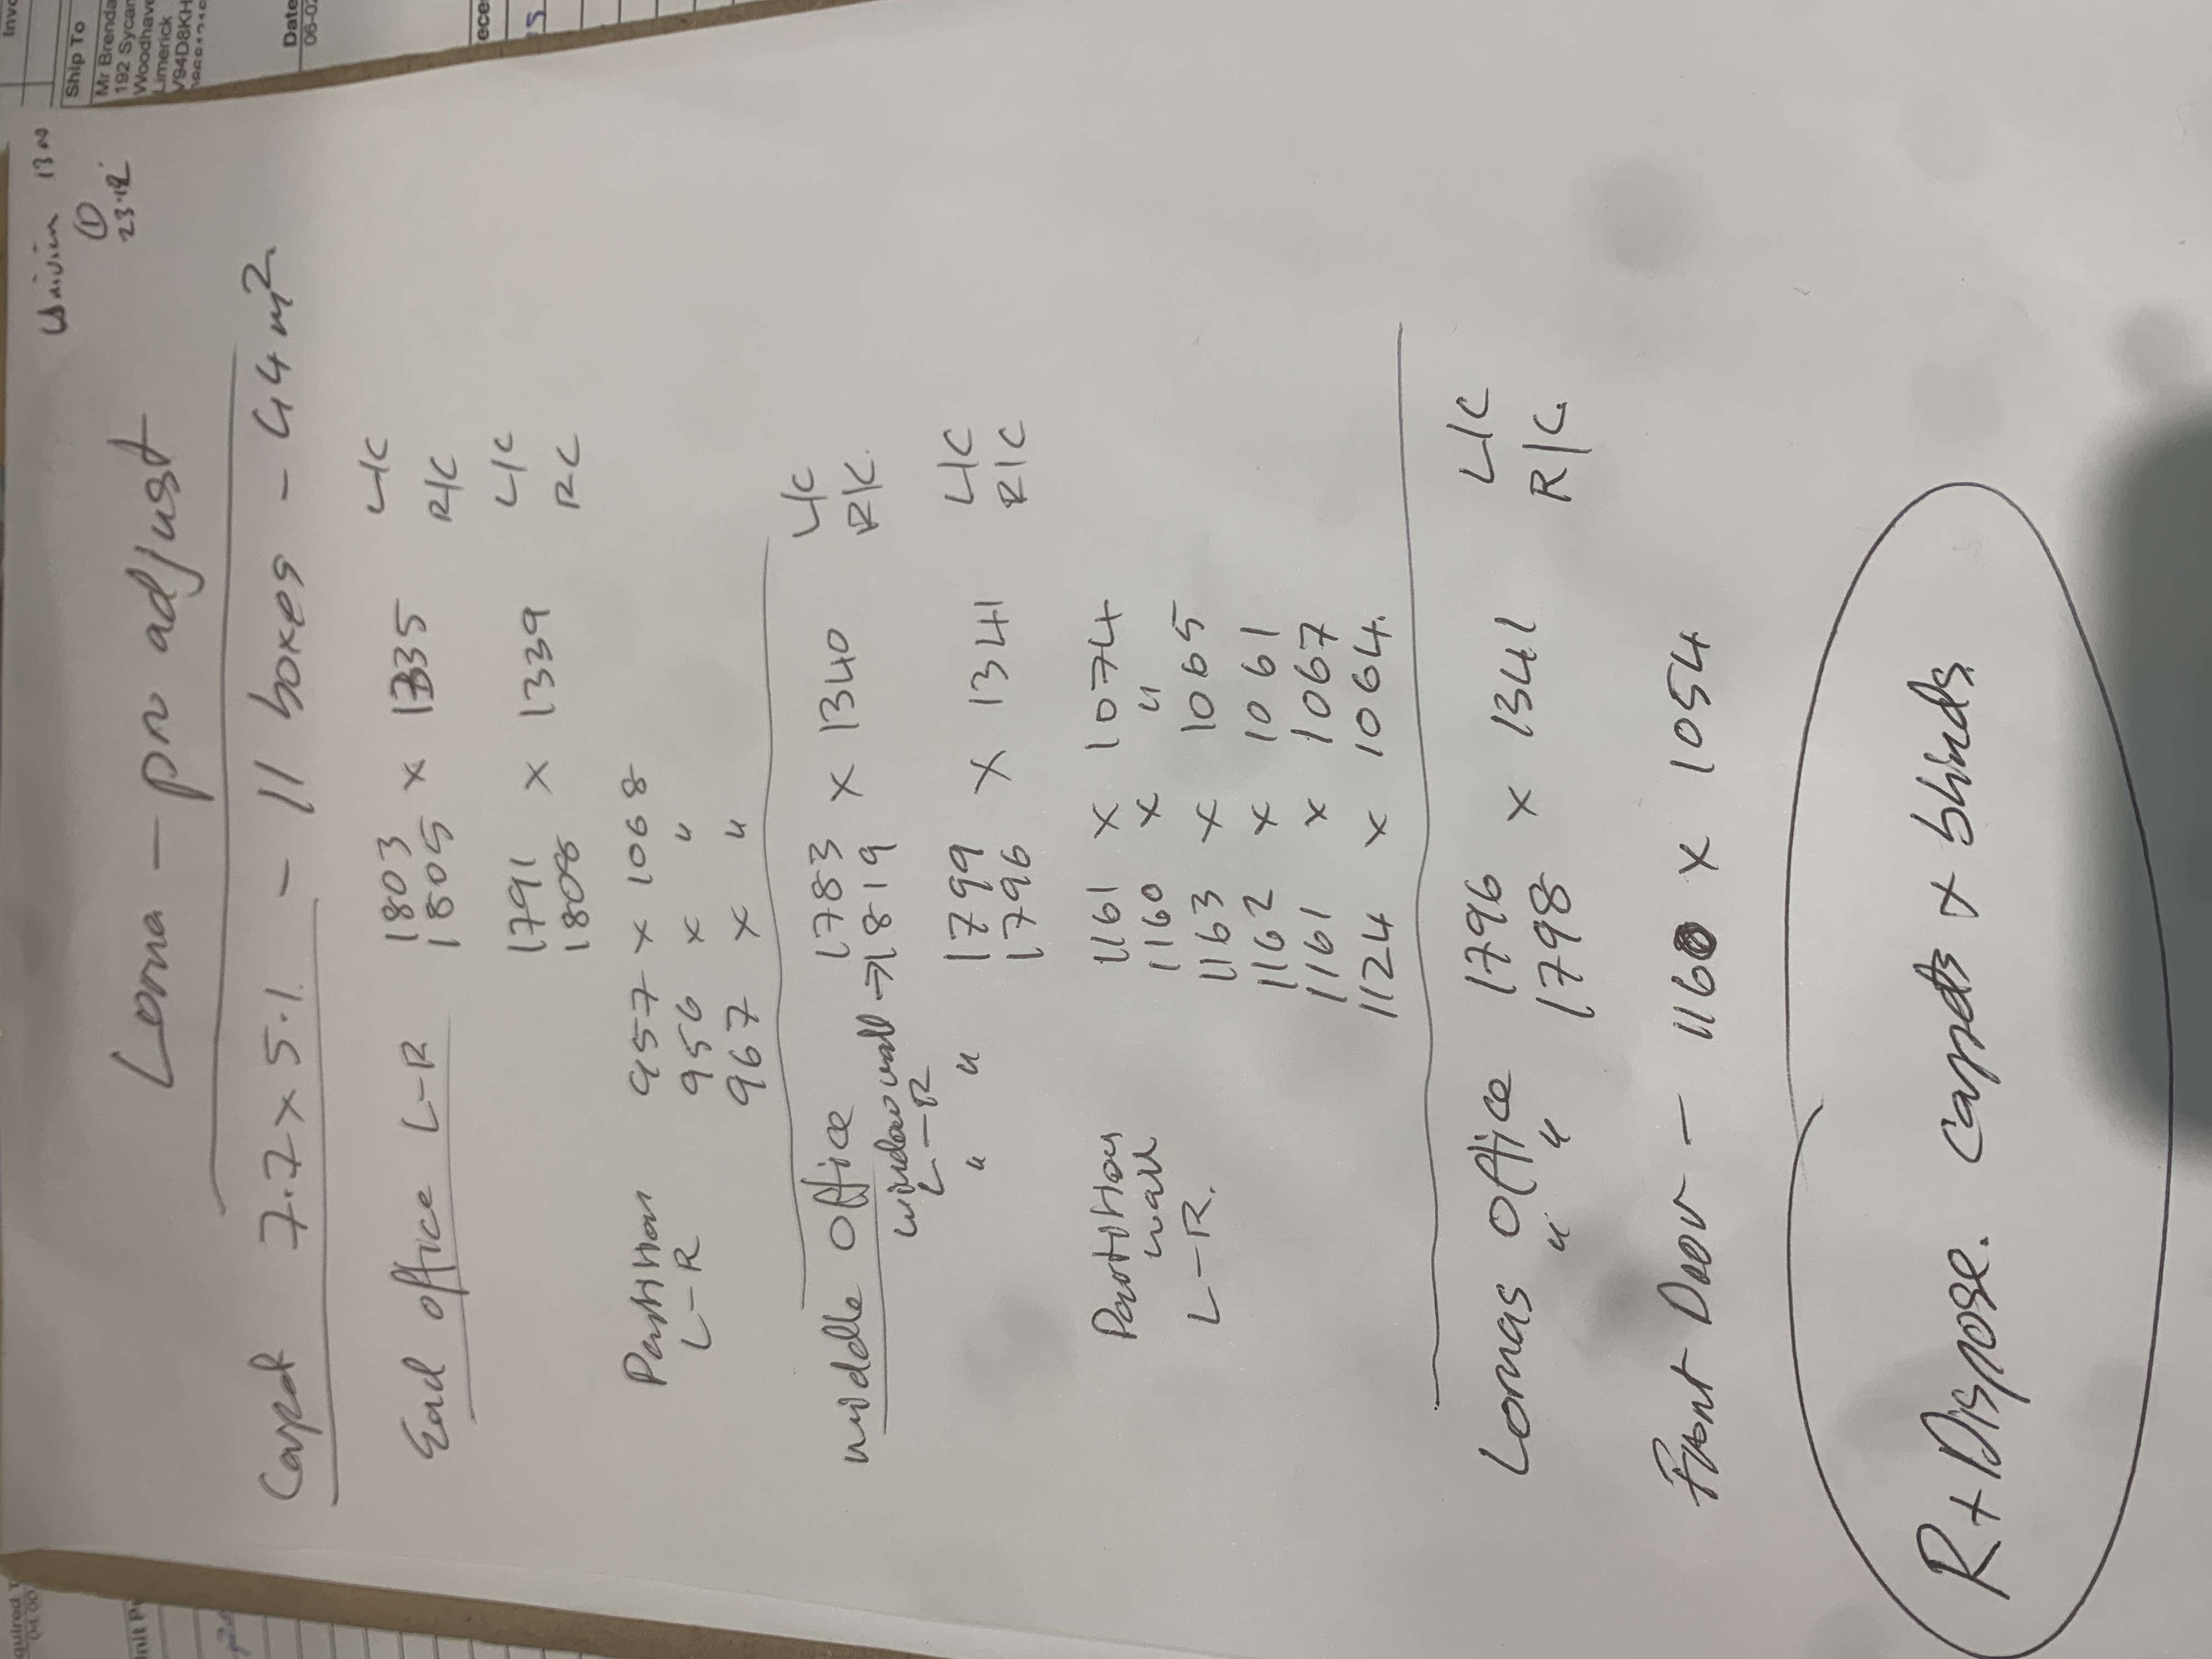 Invo
Ship To
Mr Brenda
192 Sycam
Woodhave
Limerick
V94D8KH
Date
06-02
ece
13
①
23.12
Lorna - pro adjust
Carpet 7.7 x 5.1 - 11 boxes - 44m²
End office L-R 1803 x 1335 L/C
1805 R/C
1791 x 1339 L/C
1808 RC
Partition 957 x 1068
L-R 956 x "
967 x "
middle Office 1783 x 1340 L/C
window wall → 1819 R/C
L-R
" " 1799 x 1341 L/C
1796 R/C
Partition 1161 x 1074
wall 1160 x "
L-R. 1163 x 1065
1162 x 1061
1161 x 1067
1124 x 1064.
Lornas Office 1796 x 1341 L/C
" " 1798 R/C.
Front Door - 1160 x 1054
R + Dispose. Carpets + blinds
quired
04 00
nit P